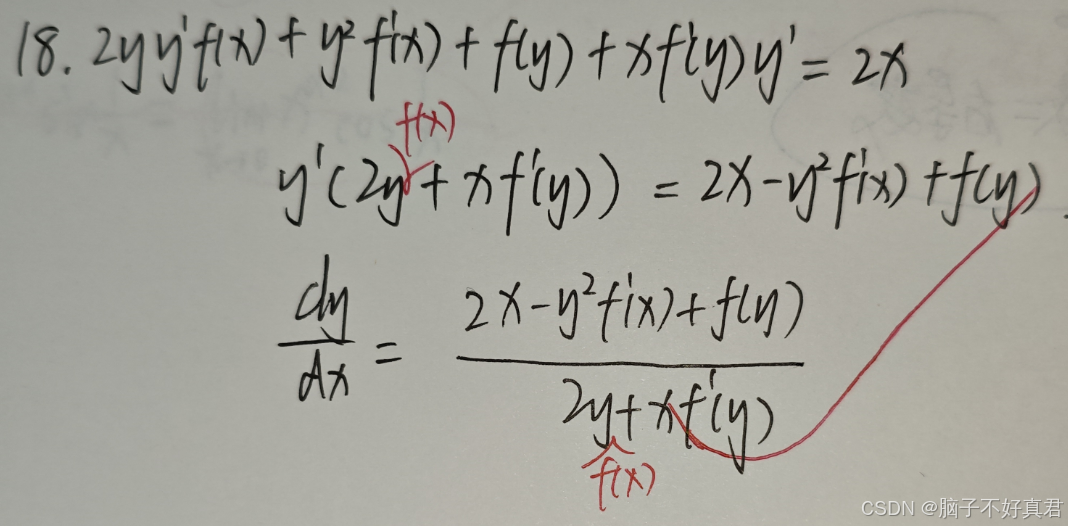 18. 2yy'f(x) + y²f'(x) + f(y) + xf'(y)y' = 2x
f(x)
y'(2y + xf'(y)) = 2x - y²f'(x) + f(y)
dy/dx = (2x - y²f'(x) + f(y))/(2y + xf'(y))
f(x)
CSDN @脑子不好真君